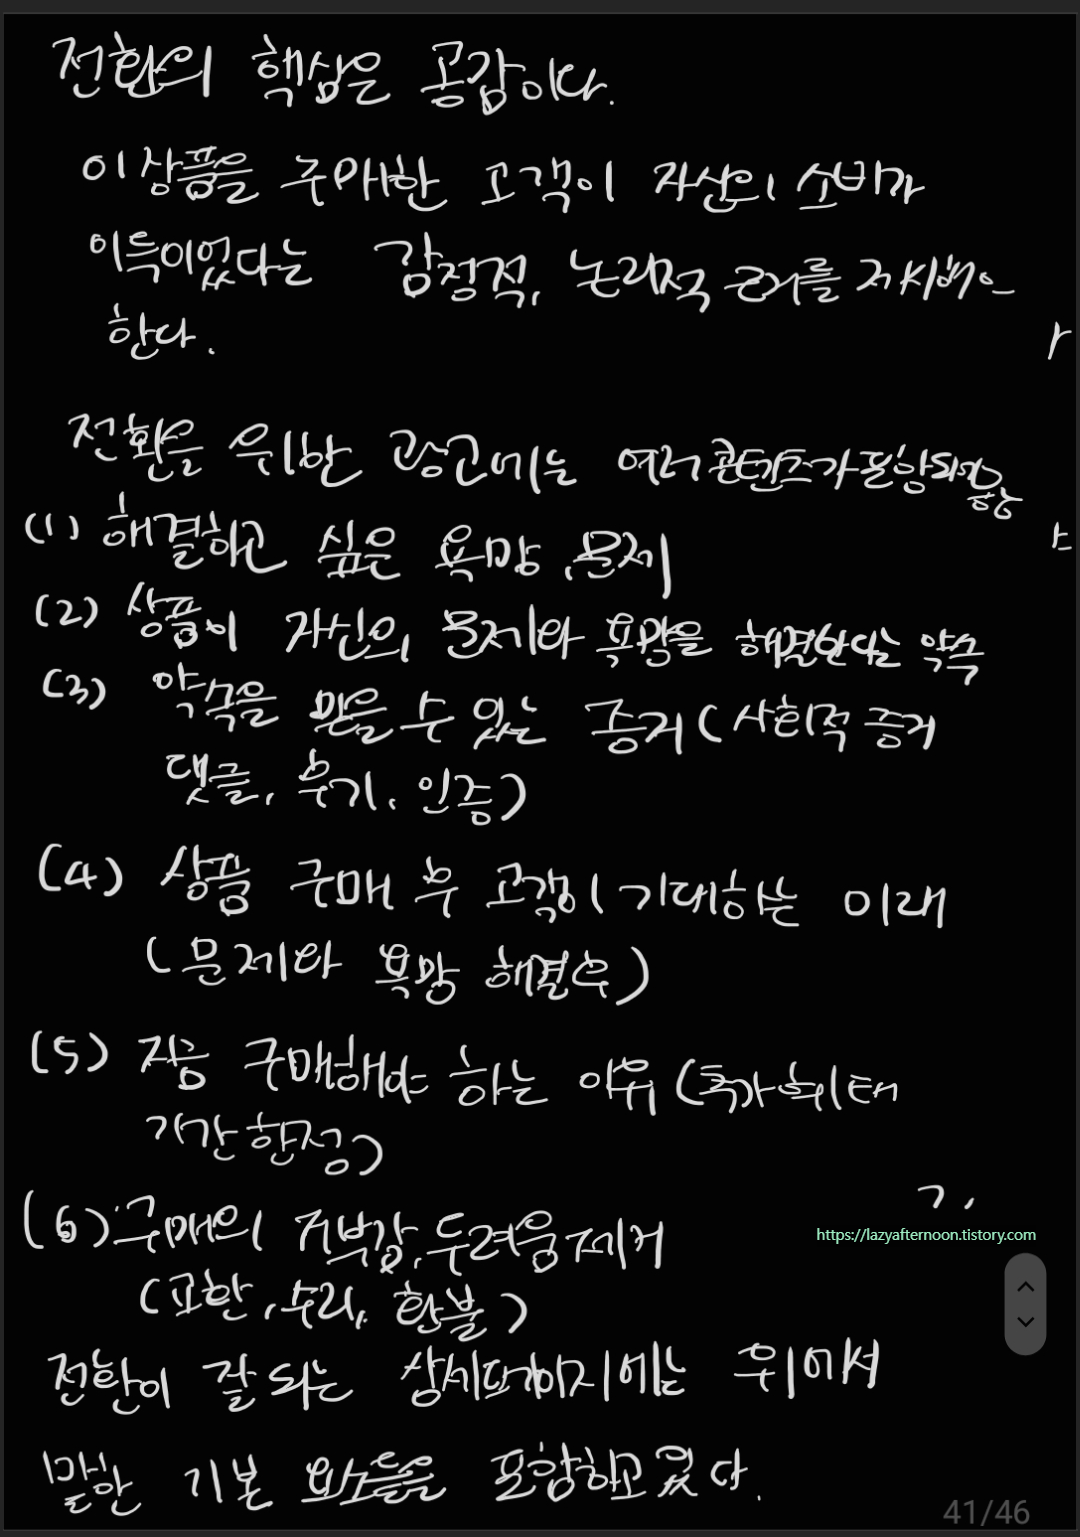 전환의 핵심은 공감이다.
이 상품을 구매한 고객이 자신의 소비가
이득이었다는 감정적, 논리적 근거를 제시해야
한다.
전환을 위한 광고에는 여러 콘텐츠가 포함되는
(1) 해결하고 싶은 욕망, 문제
(2) 상품이 자신의 문제와 욕망을 해결한다는 약속
(3) 약속을 믿을 수 있는 증거 (사회적 증거
댓글, 후기, 인증)
(4) 상품 구매 후 고객이 기대하는 미래
(문제와 욕망 해결 후)
(5) 지금 구매해야 하는 이유 (특가 혜택
기간 한정)
(6) 구매의 거부감, 두려움 제거
(교환, 수리, 환불)
https://lazyafternoon.tistory.com
전환이 잘 되는 상세페이지에는 위에서
말한 기본 요소들을 포함하고 있다.
41/46